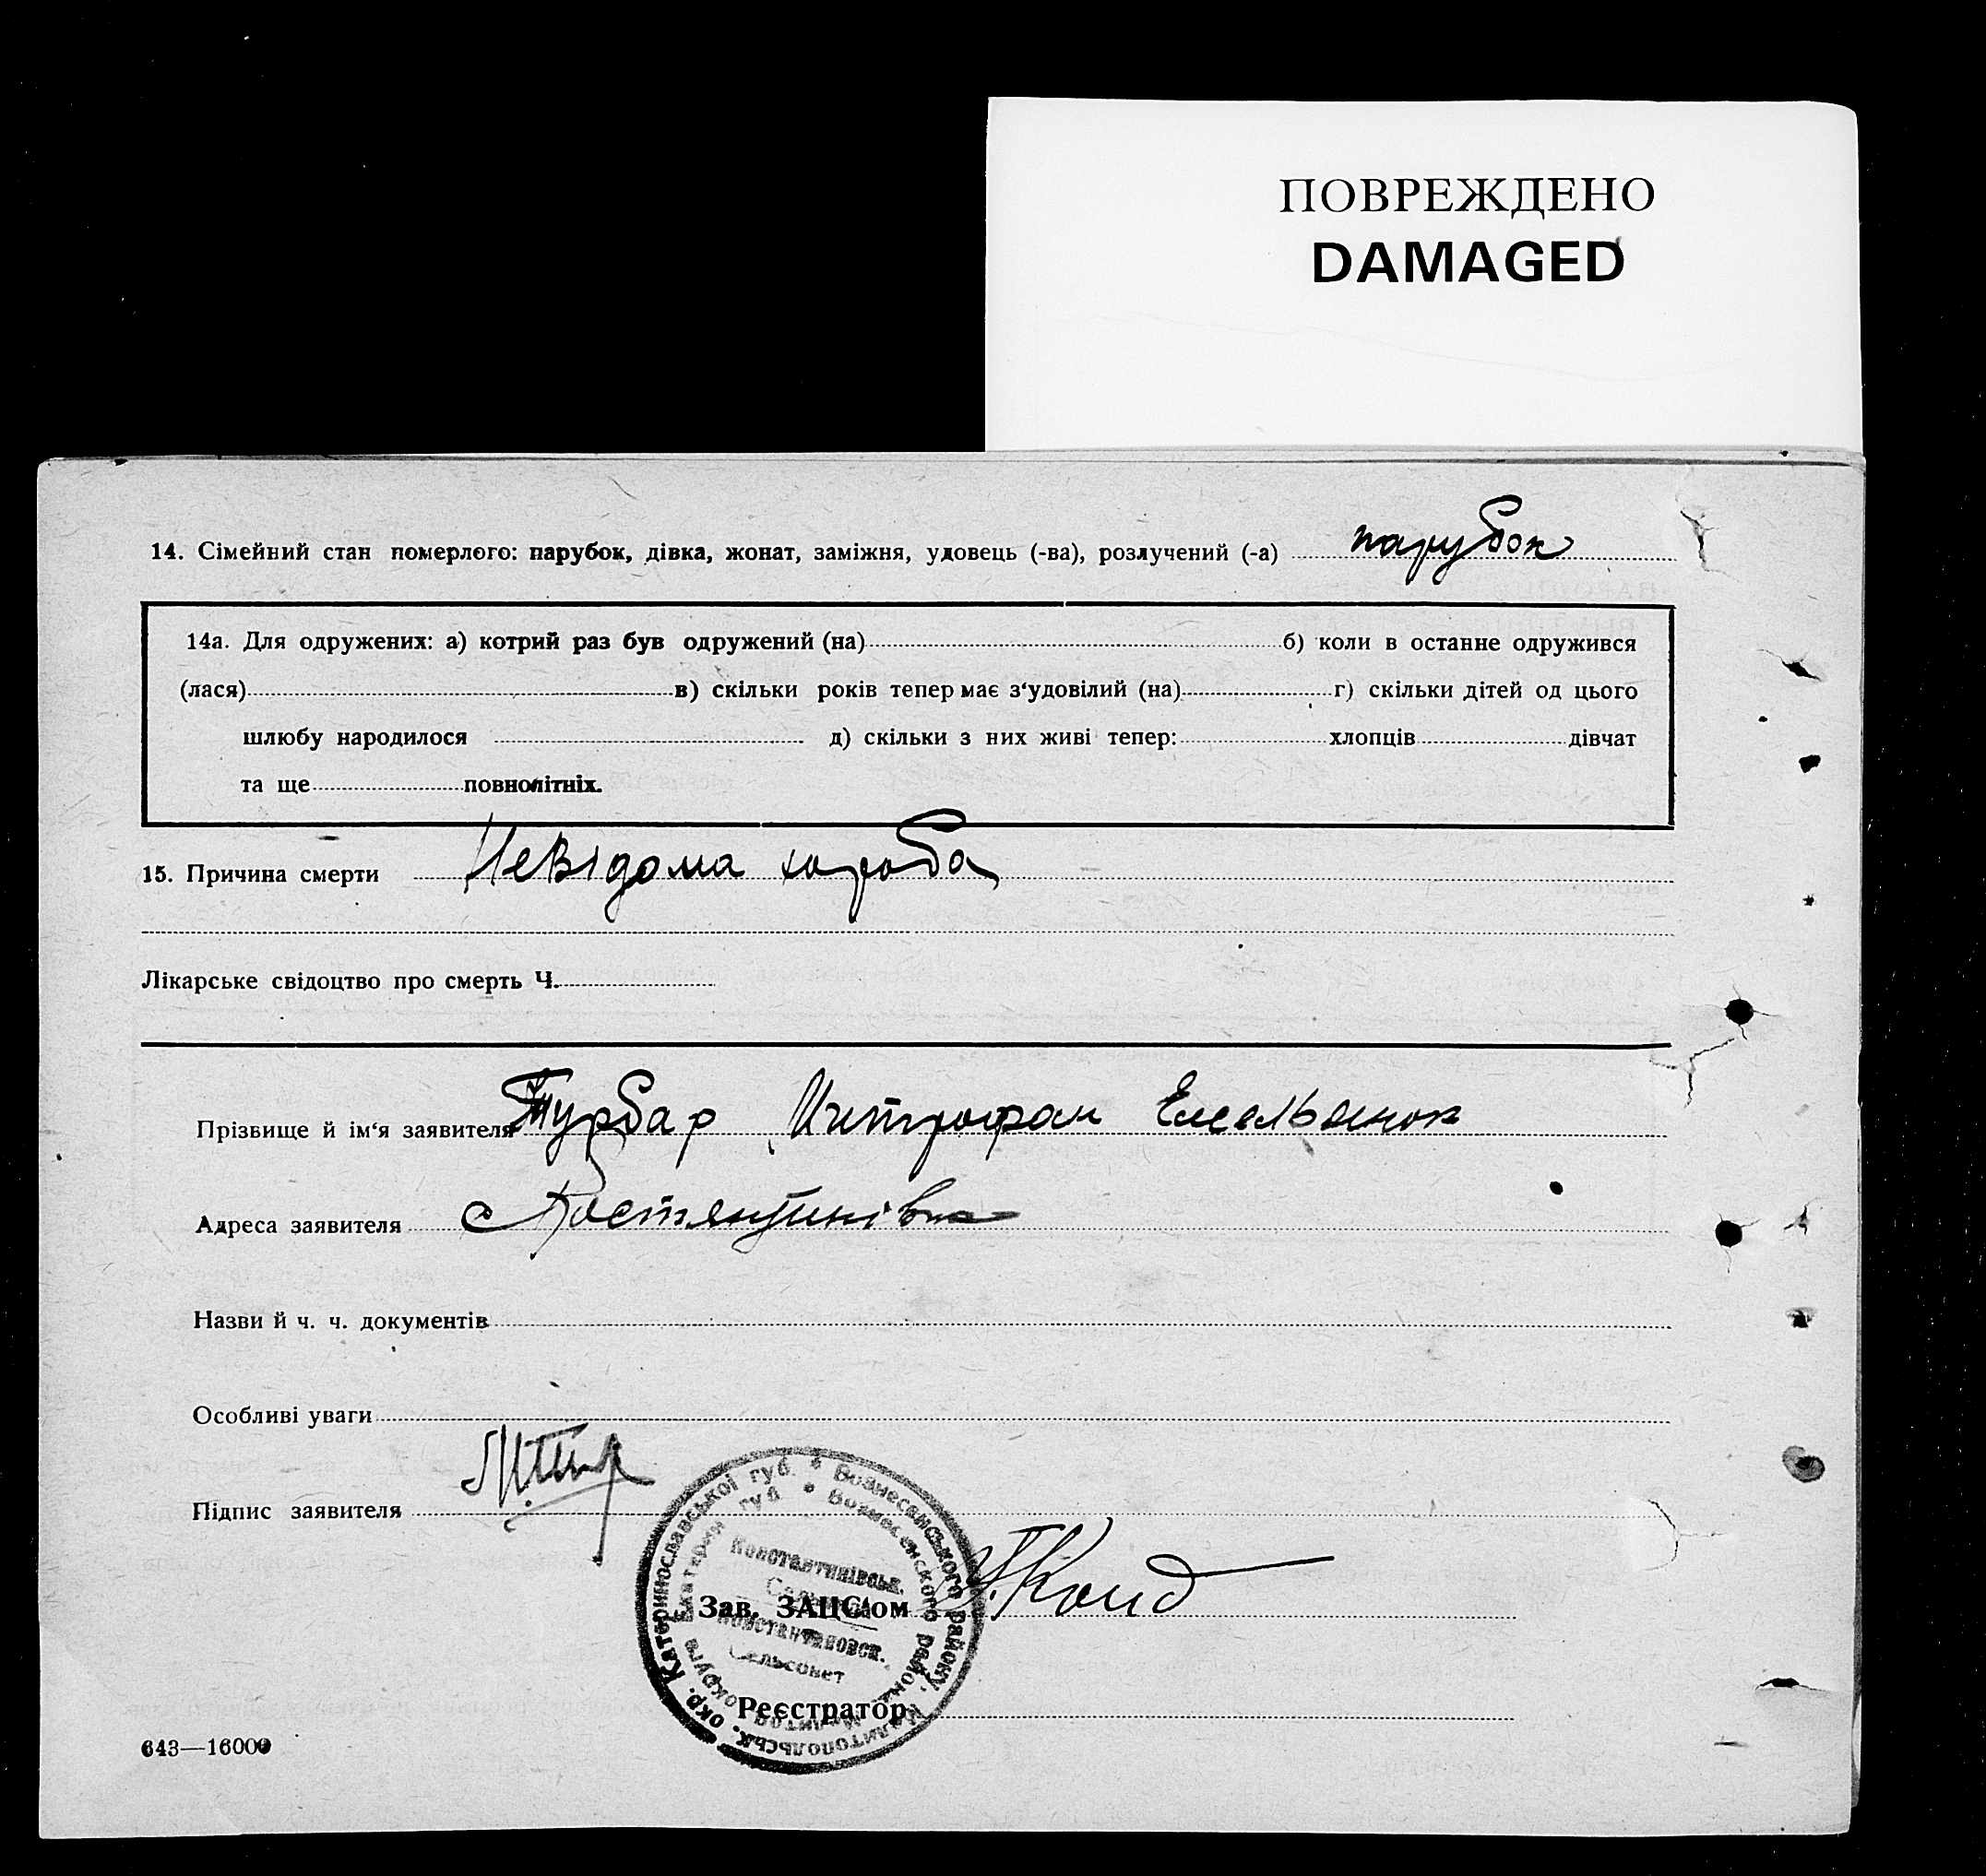 ПОВРЕЖДЕНО
DAMAGED
14. Сімейний стан померлого: парубок, дівка, жонат, заміжня, удовець (-ва), розлучений (-а) парубок
14а. Для одружених: а) котрий раз був одружений (на) б) коли в останне одружився
(лася) в) скільки років тепер має з'удовілий (на) г) скільки дітей од цього
шлюбу народилося д) скільки з них живі тепер: хлопців дівчат
та ще повнолітніх.
15. Причина смерти Невідома хороба
Лікарське свідоцтво про смерть Ч.
Прізвище й ім'я заявителя Турбар Митрофан Емельянов
Адреса заявителя с Костянтинівка
Назви й ч. ч. документів
Особливі уваги
Підпис заявителя
Катеринославської губ. * Вознесенського району, Мелитопольськ. окр.
Екатерин губ * Вознесенского района Мелитоп округа
Константинівськ.
Константиновск.
Сельсовет
Зав. ЗАЦС'ом
Реєстратор
643—16000